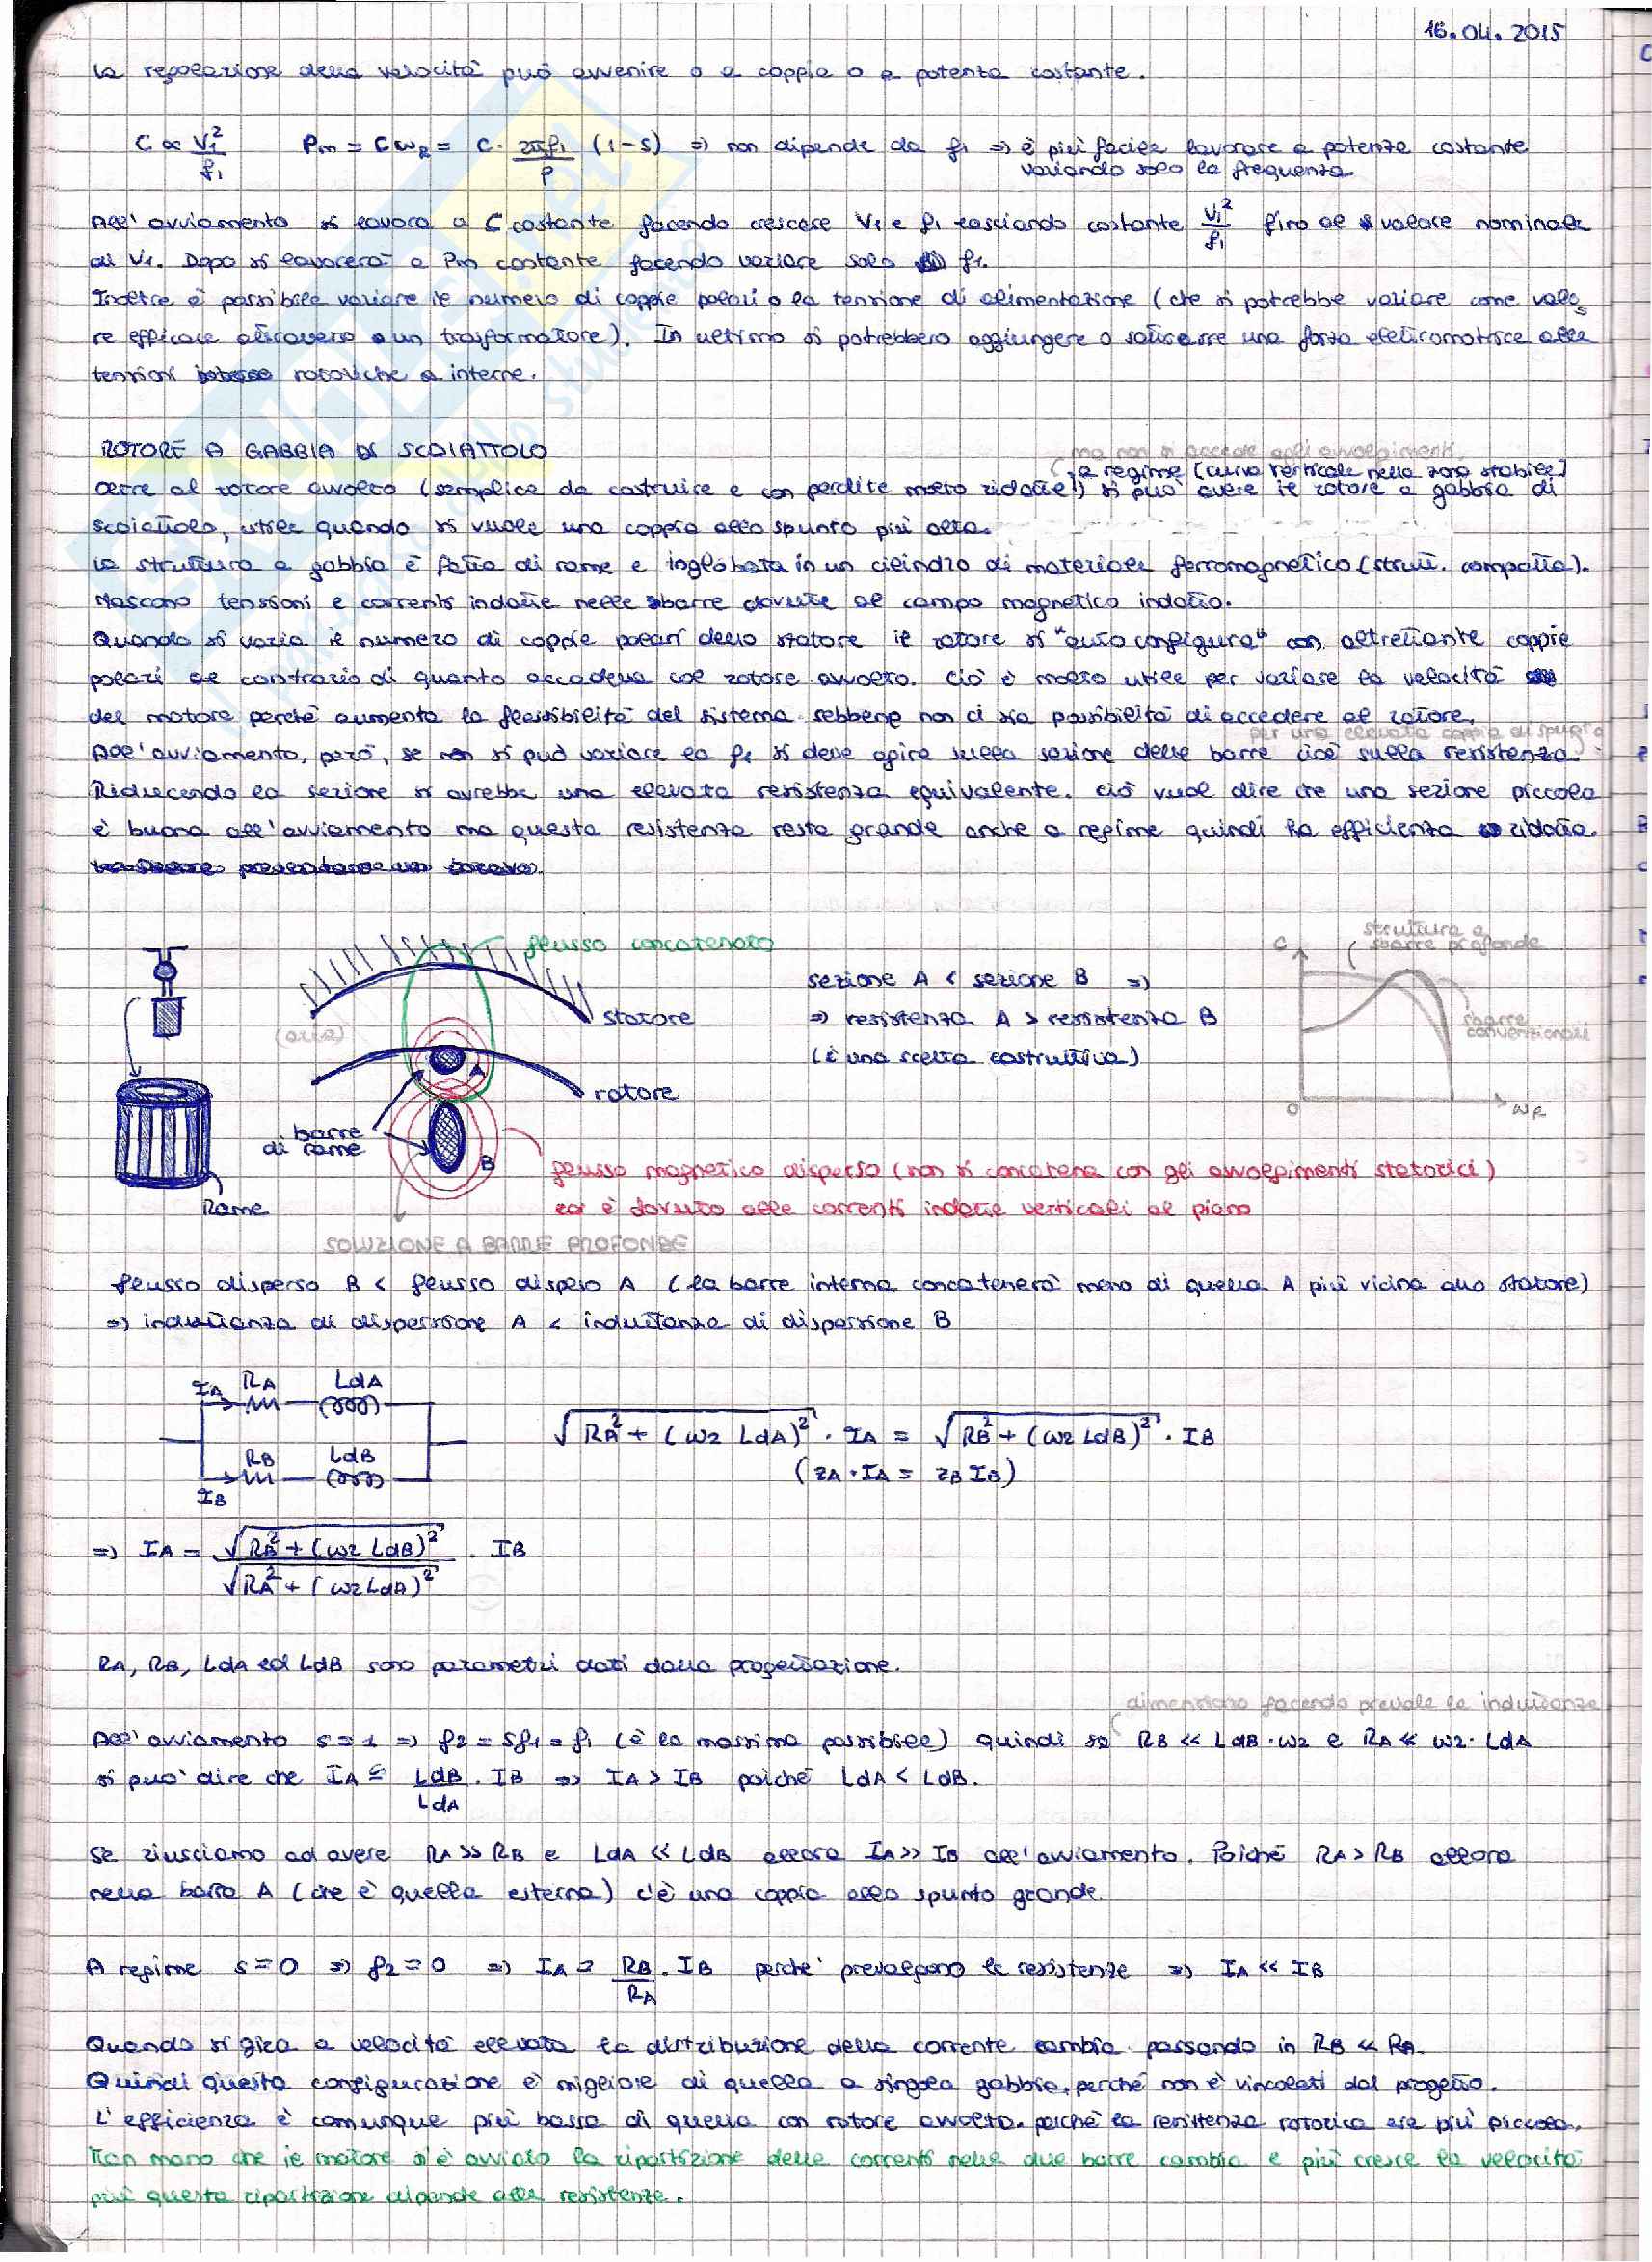 16.04.2015
La regolazione della velocità può avvenire o a coppia o a potenza costante.
C ∝ V₁²/f₁ Pm = C ωR = C · 2πf₁/p (1-s) ⇒ non dipende da f₁ ⇒ è più facile lavorare a potenza costante
variando solo la frequenza.
All'avviamento si lavora a C costante facendo crescere V₁ e f₁ lasciando costante V₁²/f₁ fino al valore nominale
di V₁. Dopo si lavorerà a Pm costante facendo variare solo f₁.
Inoltre è possibile variare il numero di coppie polari o la tensione di alimentazione (che si potrebbe variare come valo
re efficace attraverso un trasformatore). In ultimo si potrebbero aggiungere o sottrarre una forza elettromotrice alle
tensioni rotoriche interne.
ROTORE A GABBIA DI SCOIATTOLO
ma non si accede agli avvolgimenti
a regime (curva verticale nella zona stabile)
Oltre al rotore avvolto (semplice da costruire e con perdite molto ridotte) si può avere il rotore a gabbia di
scoiattolo, utile quando si vuole una coppia allo spunto più alta.
La struttura a gabbia è fatta di rame e inglobata in un cilindro di materiale ferromagnetico (strutt. compatta).
Nascono tensioni e correnti indotte nelle sbarre dovute al campo magnetico indotto.
Quando si varia il numero di coppie polari dello statore il rotore si "auto configura" con altrettante coppie
polari al contrario di quanto accadeva col rotore avvolto. Ciò è molto utile per variare la velocità
del motore perché aumenta la flessibilità del sistema sebbene non ci sia possibilità di accedere al rotore.
per una elevata coppia di spunto
All'avviamento, però, se non si può variare la f₁ si deve agire sulla sezione delle barre cioè sulla resistenza.
Riducendo la sezione si avrebbe una elevata resistenza equivalente. Ciò vuol dire che una sezione piccola
è buona all'avviamento ma questa resistenza resta grande anche a regime quindi ha efficienza ridotta.
flusso concatenato
(aria)
statore
A
rotore
barre
di rame
B
Rame
sezione A < sezione B ⇒
⇒ resistenza A > resistenza B
(è una scelta costruttiva)
C
struttura a
sbarre profonde
sbarre
convenzionali
0
ωR
flusso magnetico disperso (non si concatena con gli avvolgimenti statorici)
ed è dovuto alle correnti indotte verticali al piano
SOLUZIONE A BARRE PROFONDE
flusso disperso B < flusso dispeso A (la barre interna concatenerà meno di quella A più vicina allo statore)
⇒ induttanza di dispersione A < induttanza di dispersione B
IA RA LdA
RB LdB
IB
√(RA² + (ω2 LdA)²) · IA = √(RB² + (ω2 LdB)²) · IB
(ZA · IA = ZB IB)
⇒ IA = √(RB² + (ω2 LdB)²) / √(RA² + (ω2 LdA)²) · IB
RA, RB, LdA ed LdB sono parametri dati dalla progettazione.
dimensiono facendo prevale le induttanze
All'avviamento s=1 ⇒ f2 = sf1 = f1 (è la massima possibile) quindi se RB << LdB · ω2 e RA << ω2 · LdA
si può dire che IA ≅ LdB/LdA · IB ⇒ IA > IB poiché LdA < LdB.
Se riusciamo ad avere RA >> RB e LdA << LdB allora IA >> IB all'avviamento. Poiché RA > RB allora
nella barra A (che è quella esterna) c'è una coppia allo spunto grande.
A regime s=0 ⇒ f2=0 ⇒ IA = RB/RA · IB perché prevalgono le resistenze ⇒ IA << IB
Quando si gira a velocità elevata la distribuzione della corrente cambia passando in RB << RA.
Quindi questa configurazione è migliore di quella a singola gabbia, perché non è vincolati dal progetto.
L'efficienza è comunque più bassa di quella con rotore avvolto perché la resistenza rotorica era più piccola.
Man mano che il motore si è avviato la ripartizione delle correnti nelle due barre cambia e più cresce la velocità
più questa ripartizione dipende alle resistenze.